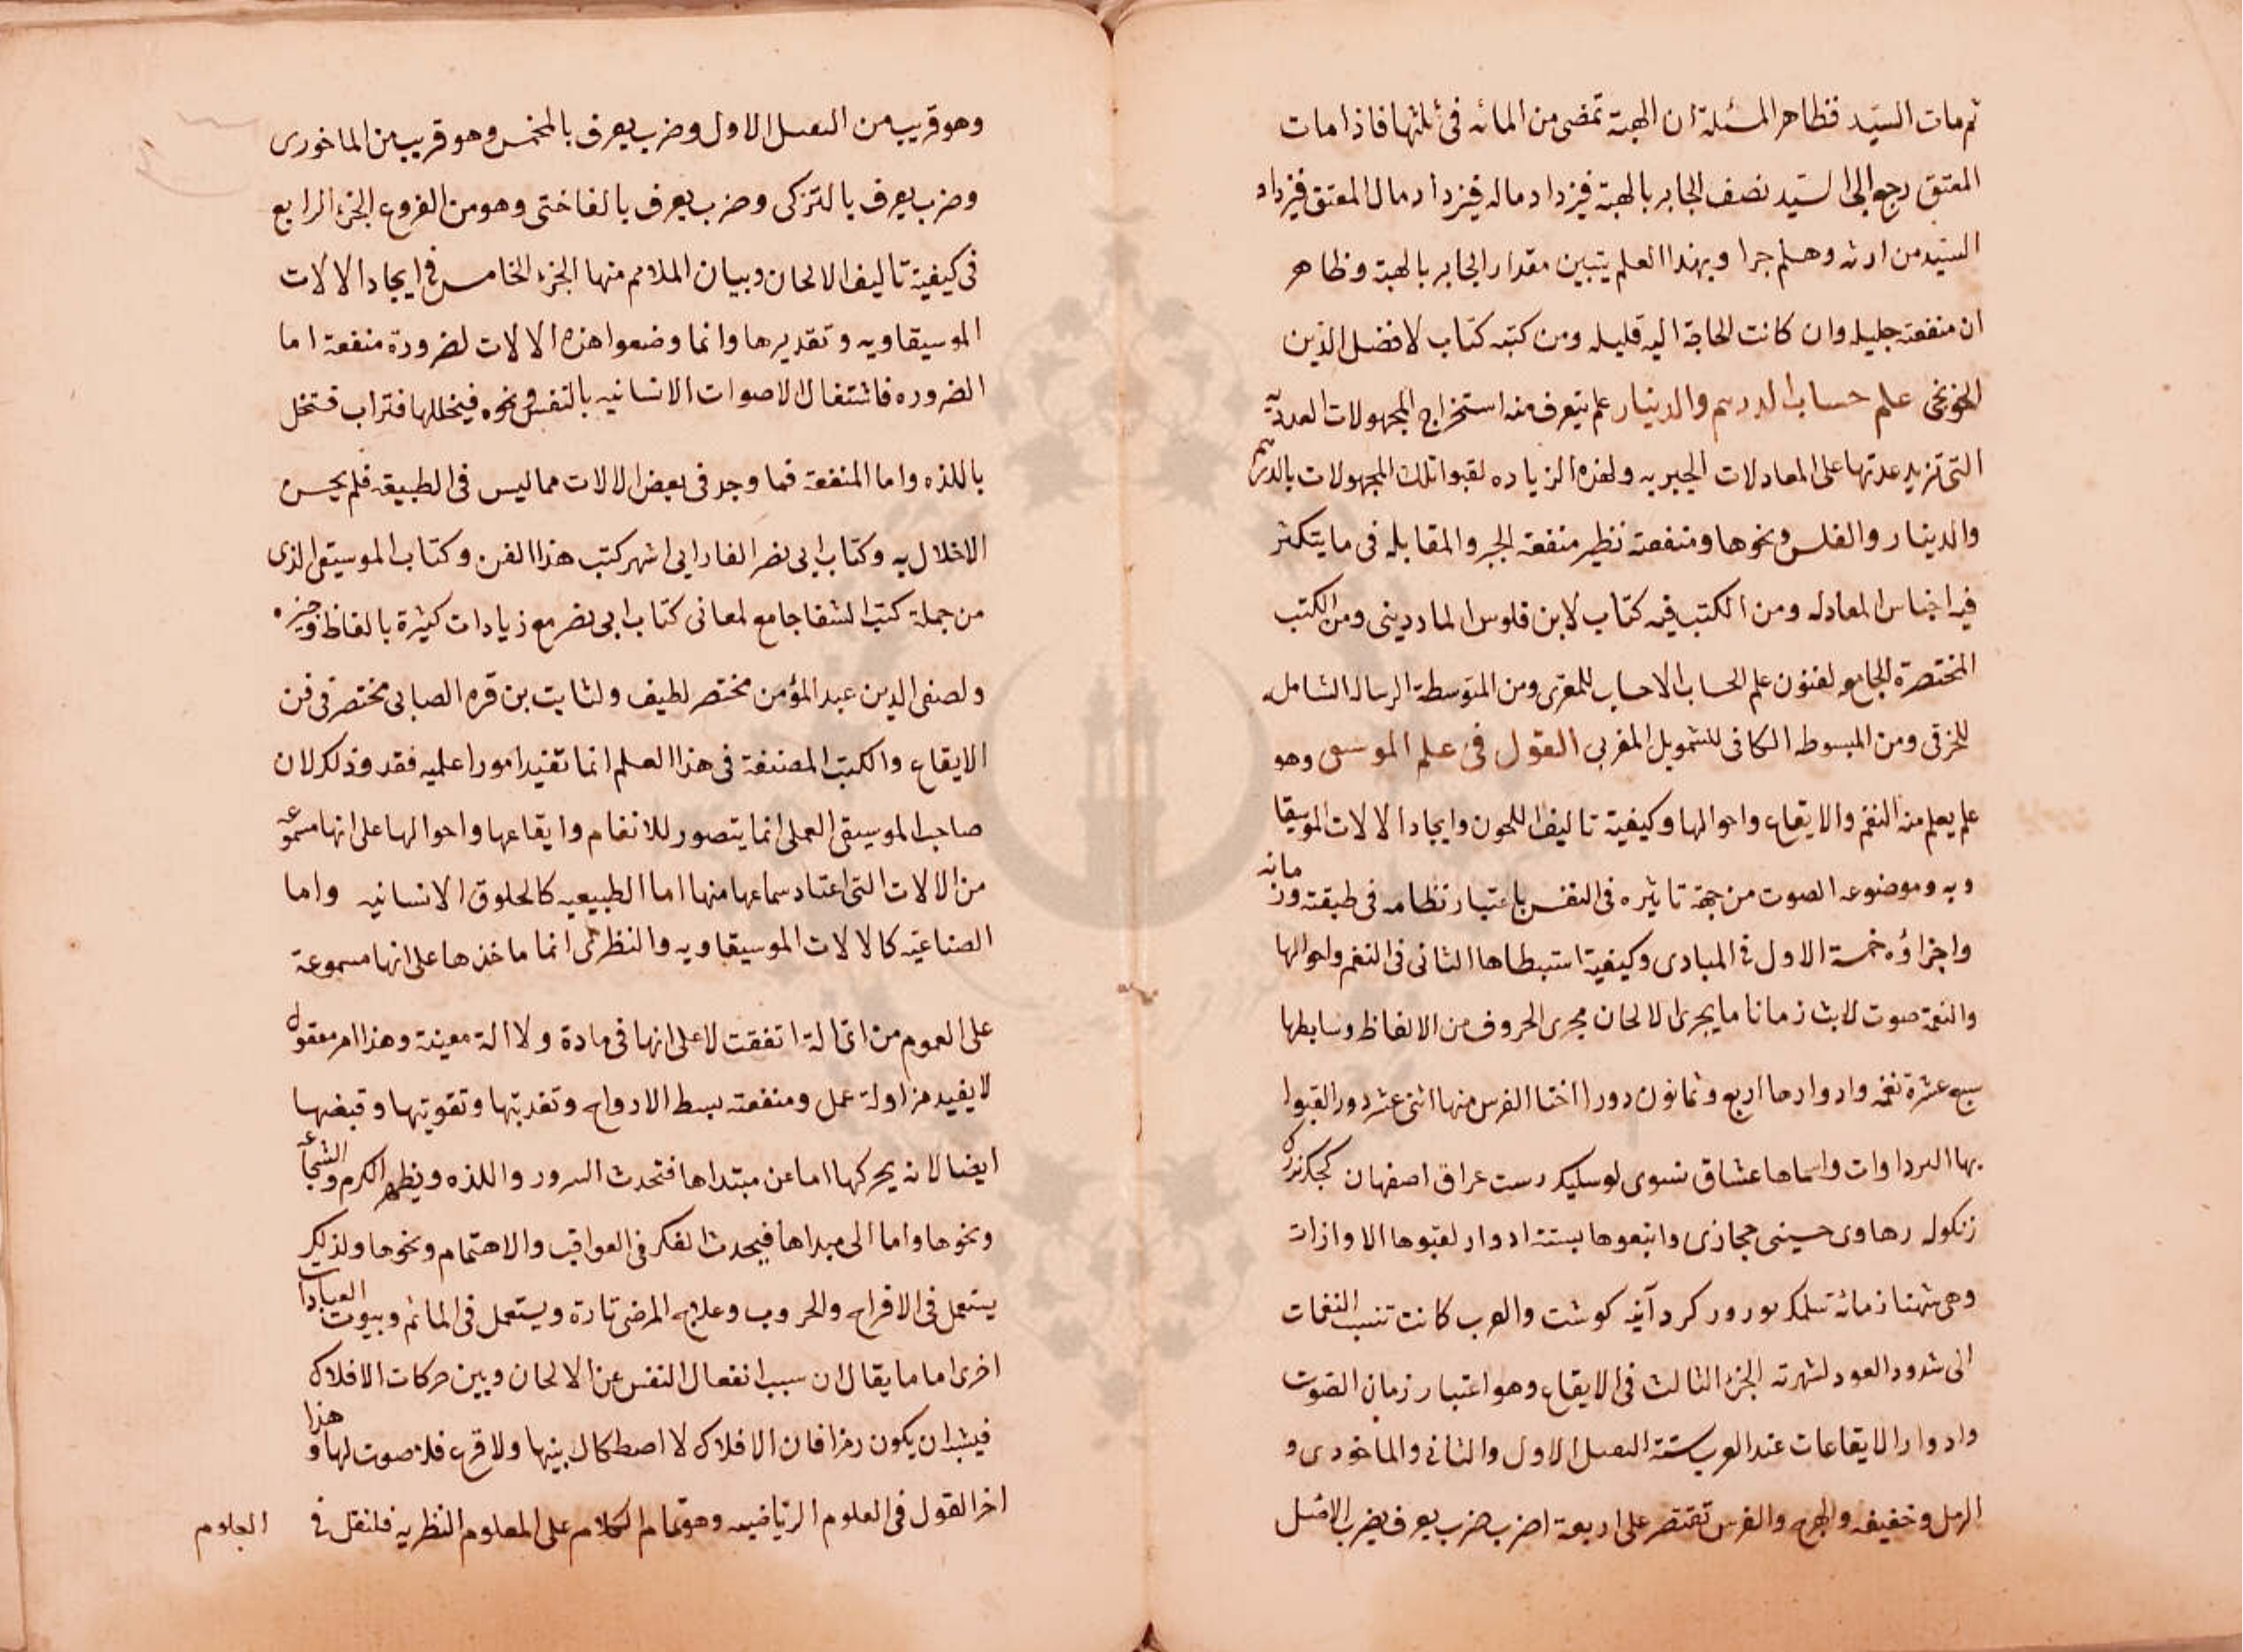 ثم مات السيد فظاهر المسئلة ان الهبة تمضى من المائه فى ثلثها فاذا مات
المعتق رجع الى السيد نصف الجابر بالهبة فيزداد ماله فيزداد مال المعتق فيزداد
السيد من ارثه وهلم جرا وبهذا العلم يتبين مقدار الجابر بالهبة وظاهر
ان منفعته جليله وان كانت الحاجة اليه قليله ومن كتبه كتاب لافضل الدين
الخونجى علم حساب الدرهم والدينار علم يتعرف منه استخراج المجهولات العددية
التى تزيد عدتها على المعادلات الجبريه ولهذه الزياده لقبوا تلك المجهولات بالدرهم
والدينار والفلس ونحوها ومنفعته نظير منفعة الجبر والمقابله فى ما يتكثر
فيه اجناس المعادله ومن الكتب فيه كتاب لابن فلوس الماردينى ومن الكتب
المختصرة الجامع لفنون علم الحساب الاحساب للمغرى ومن المتوسطة الرساله الشامله
للخرقى ومن المبسوط الكافى للشمويل المغربى القول فى علم الموسيقى وهو
علم يعلم منه النغم والايقاع واحوالها وكيفية تاليف اللحون وايجاد الالات الموسيقا
ويه وموضوعه الصوت من جهة تاثيره فى النفس باعتبار نظامه فى طبقته وزمانه
واجزاؤه خمسة الاول فى المبادى وكيفية استبطاها الثانى فى النغم واحوالها
والنغمة صوت لابث زمانا ما يجرى الالحان مجرى الحروف من الالفاظ وسابطها
سبع عشرة نغمه وادوارها اربع وثمانون دورا اختا الفرس منها اثنى عشر دورا لقبوا
بها البرداوات واسماها عشاق نسوى لوسليك رست عراق اصفهان
زنكوله رهاوى حسينى حجازى واتبعوها بستة ادوار لقبوها الاوازات
وهى شهنا زمائه سلمك نوروز كردآنيه كوشت والعرب كانت تنسب النغمات
الى شدود العود لشهرته الجزء الثالث فى الايقاع وهو اعتبار زمان الصوت
وادوار الايقاعات عند العرب ستة الثقيل الاول والثانى والماخورى و
الرمل وخفيفه والهزج والفرس تقتصر على اربعة اضرب ضرب يعرف بضرب الاصل
وهو قريب من الثقيل الاول وضرب يعرف بالمخمس وهو قريب من الماخورى
وضرب يعرف بالتركى وضرب يعرف بالفاختى وهو من الفروع الجزء الرابع
فى كيفية تاليف الالحان وبيان الملائم منها الجزء الخامس فى ايجاد الالات
الموسيقاويه وتقديرها وانما وضعوا هذه الالات لضرورة منفعة اما
الضروره فاشتغال الاصوات الانسانيه بالتنفس ونحوه فيخللها فتراب فتخل
باللذه واما المنفعة فما وجد فى بعض الالات مما ليس فى الطبيعة فلم يحسن
الاخلال به وكتاب ابى نصر الفارابى اشهر كتب هذا الفن وكتاب الموسيقى الذى
من جملة كتب الشفا جامع لمعانى كتاب ابى نصر مع زيادات كثيرة بالفاظ وجيزه
ولصفى الدين عبد المؤمن مختصر لطيف ولثابت بن قره الصابى مختصر فى فن
الايقاع والكتب المصنفة فى هذا العلم انما تفيد امورا علميه فقد وذلك لان
صاحب الموسيقى العملى انما يتصور للانغام وايقاعها واحوالها على انها مسموعة
من الالات التى اعتاد سماعها منها اما الطبيعيه كالحلوق الانسانيه واما
الصناعيه كالالات الموسيقاويه والنظرى انما ماخذها على انها مسموعة
على العموم من اى الة اتفقت لا على انها فى مادة ولا الة معينة وهذا امر معقول
لا يفيد مزاولة عمل ومنفعته بسط الارواح وتغديتها وتقويتها وقبضها
ايضا لانه يحركها اما عن مبتداها فتحدث السرور واللذه ويظهر الكرم والشجاعة
ونحوها واما الى مبداها فيحدث الفكر فى العواقب والاهتمام ونحوها ولذلك
يستعمل فى الافراح والحروب وعلاج المرضى تارة ويستعمل فى المآتم وبيوت العبادات
اخرى اما ما يقال ان سبب انفعال النفس عن الالحان وبين حركات الافلاك
فيشبه ان يكون رمزا فان الافلاك لا اصطكاك بينها ولا قرع فلا صوت لها وهذا
اخر القول فى العلوم الرياضيه وهو تمام الكلام على المعلوم النظريه فلنقل فى
العلوم